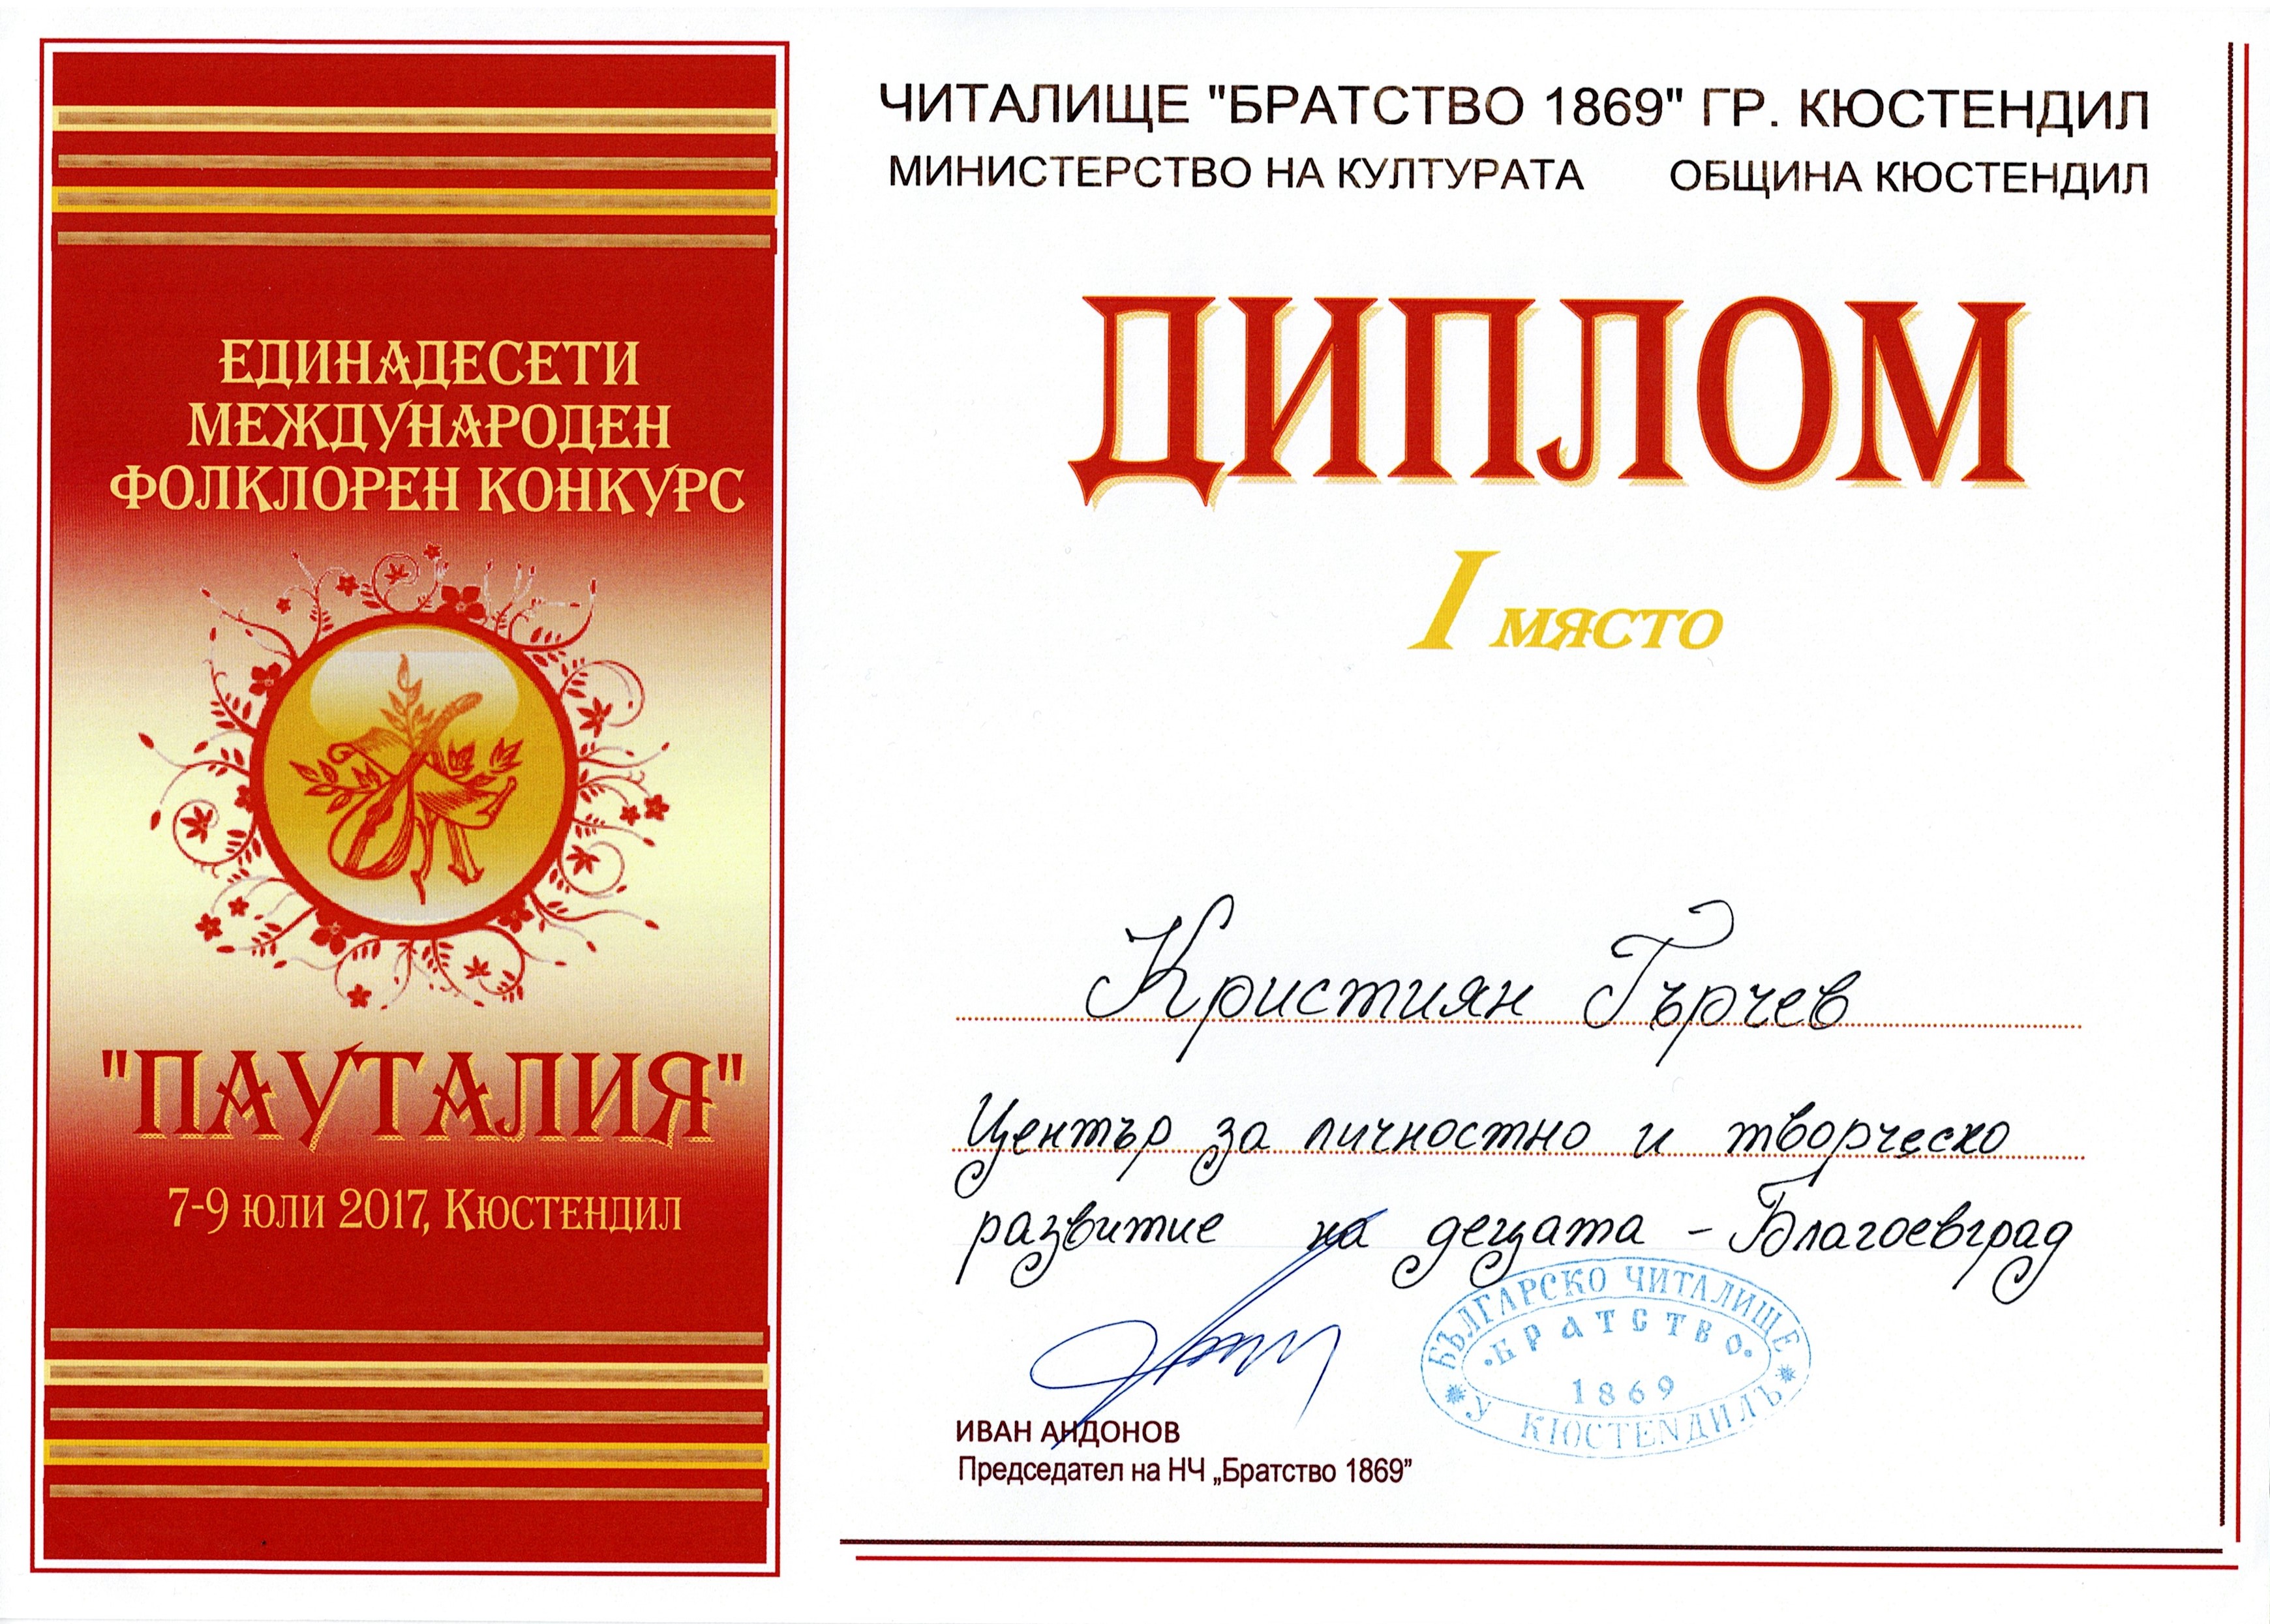 ЕДИНАДЕСЕТИ
МЕЖДУНАРОДЕН
ФОЛКЛОРЕН КОНКУРС
"ПАУТАЛИЯ"
7-9 ЮЛИ 2017, КЮСТЕНДИЛ
ЧИТАЛИЩЕ "БРАТСТВО 1869" ГР. КЮСТЕНДИЛ
МИНИСТЕРСТВО НА КУЛТУРАТА ОБЩИНА КЮСТЕНДИЛ
ДИПЛОМ
I МЯСТО
Кристиян Гърчев
Център за личностно и творческо
развитие на децата - Благоевград
БЪЛГАРСКО ЧИТАЛИЩЕ
БРАТСТВО
1869
У КЮСТЕНДИЛЪ
ИВАН АНДОНОВ
Председател на НЧ „Братство 1869”